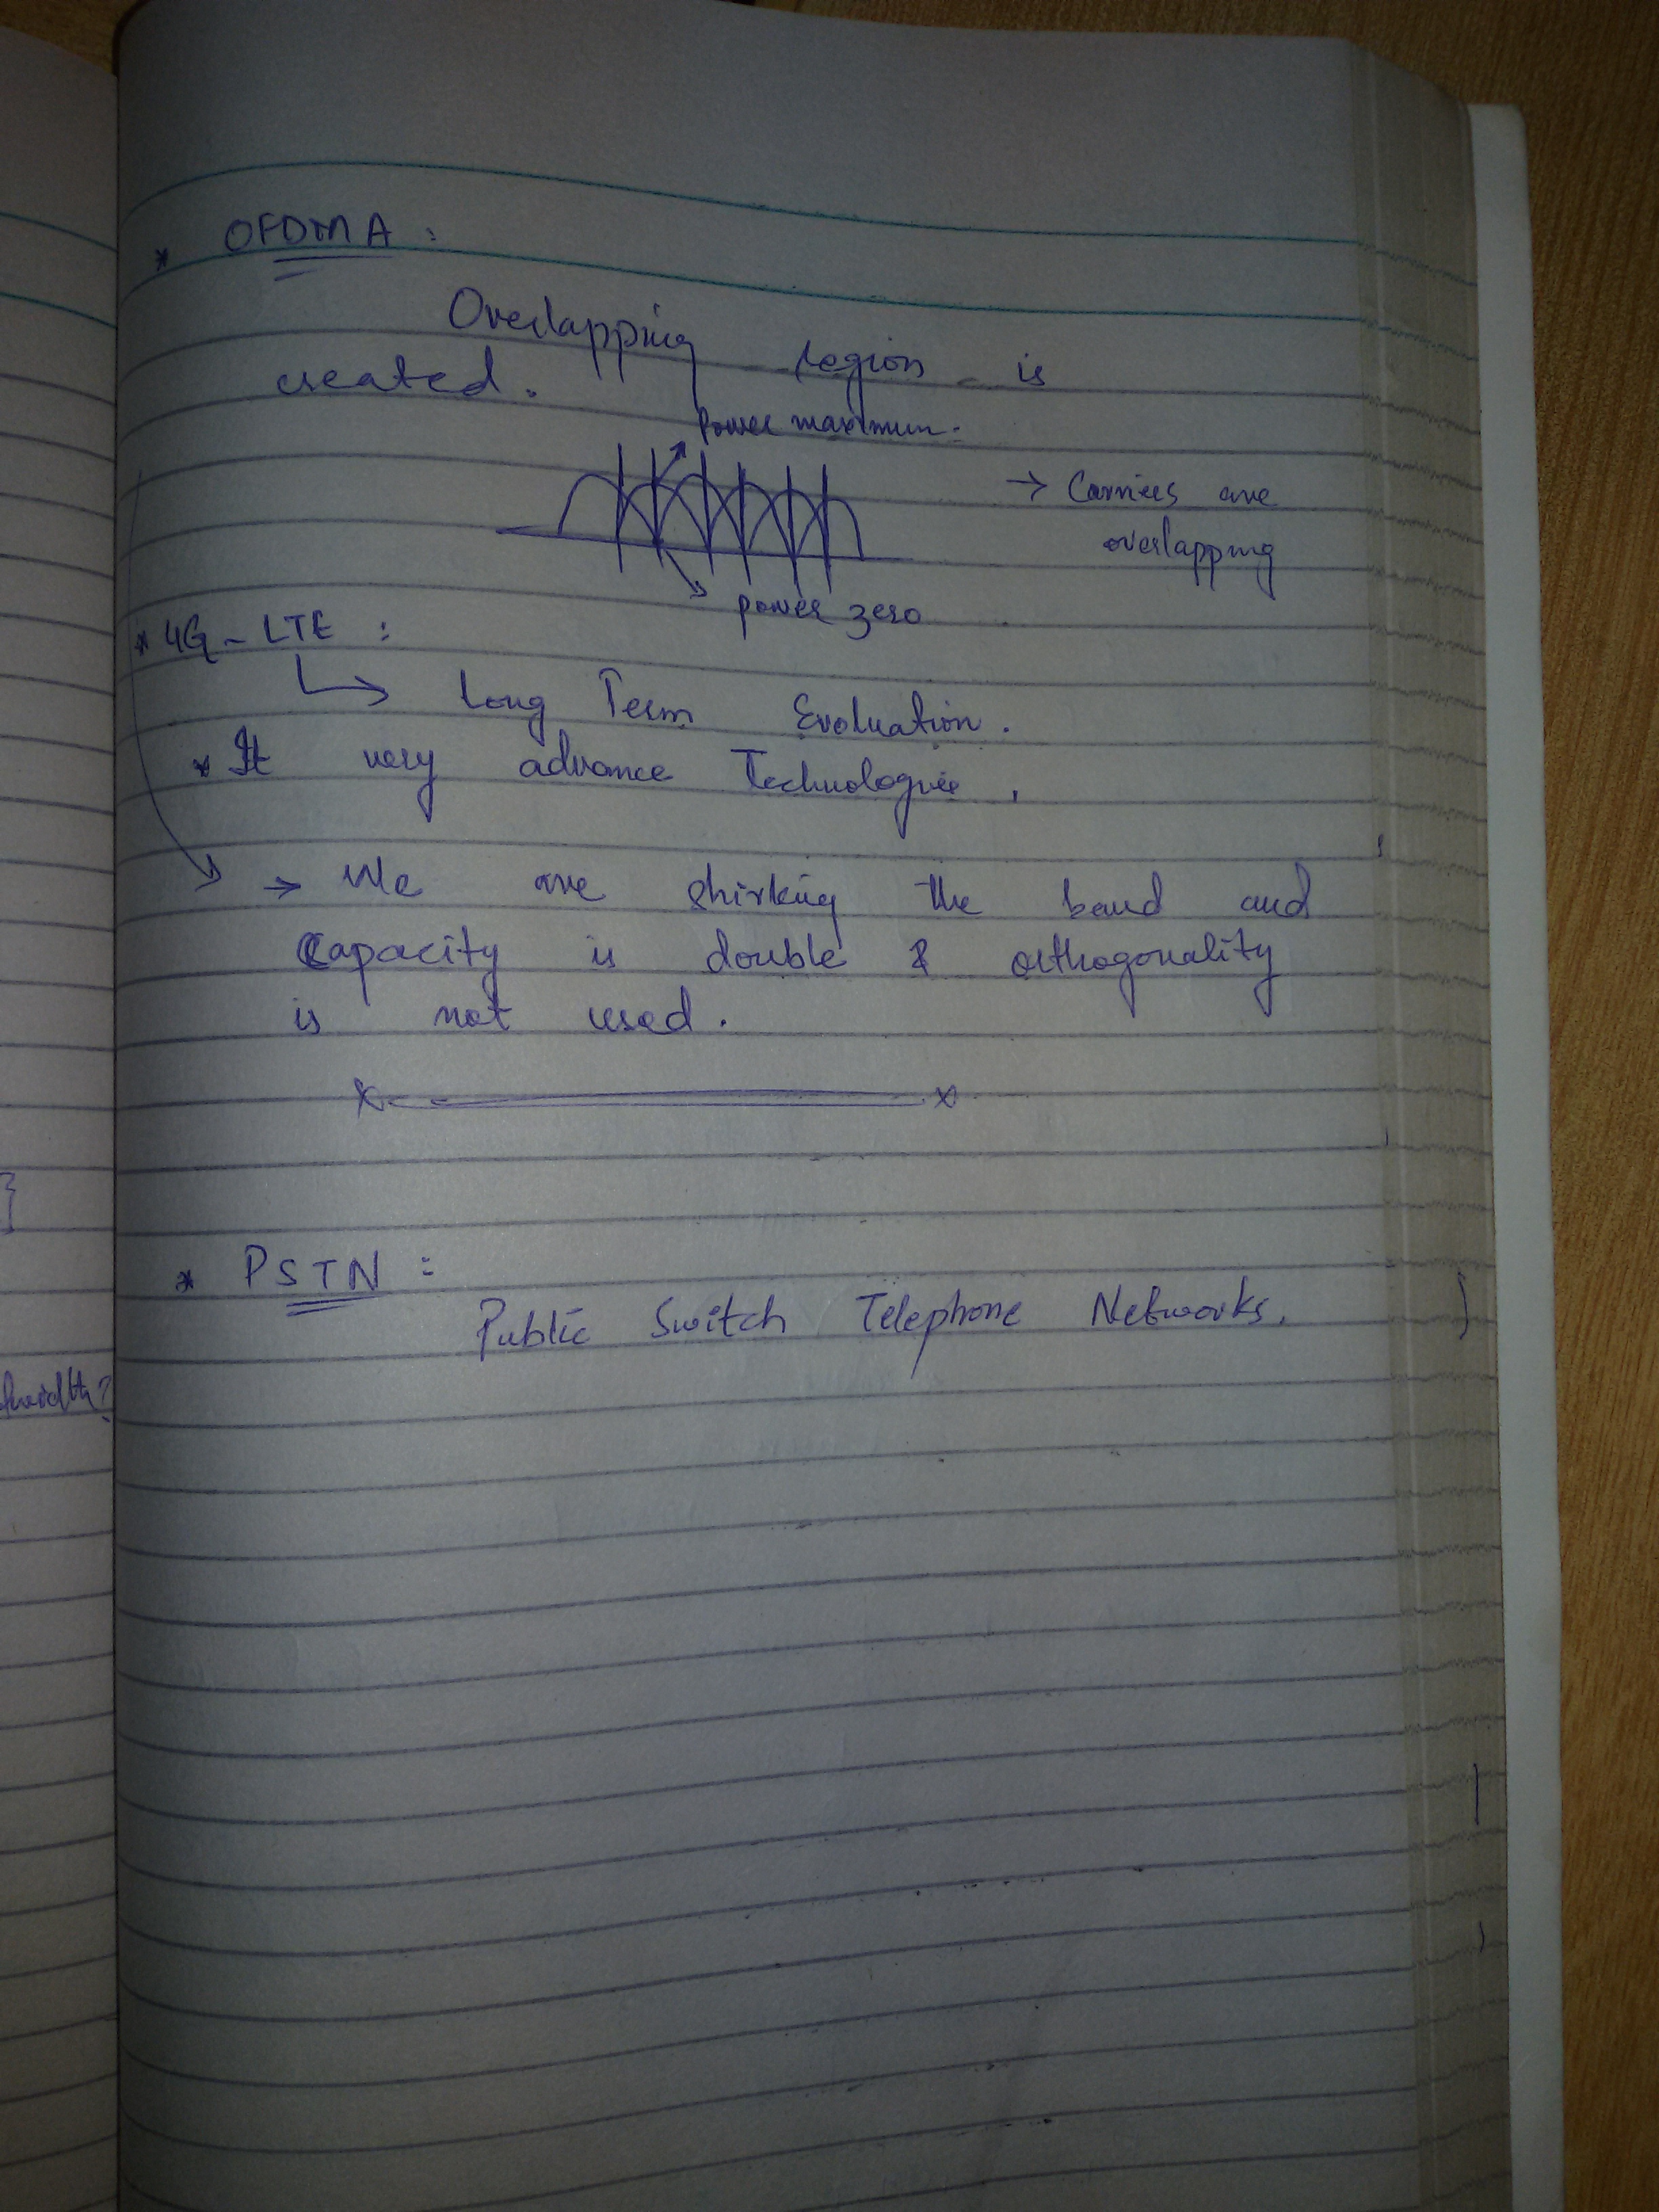 * OFDMA :
Overlapping region is
created.
Power maximum.
→ Carriers are
overlapping
power zero
* 4G - LTE :
Long Term Evoluation.
* It very advance Technologie.
→ We are shirking the band and
Capacity is double & orthogonality
is not used.
* PSTN :
Public Switch Telephone Networks.